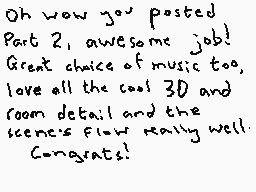 Oh wow you posted
Part 2, awesome job!
Great choice of music too,
love all the cool 3D and
room detail and the
scene's flow really well.
Congrats!